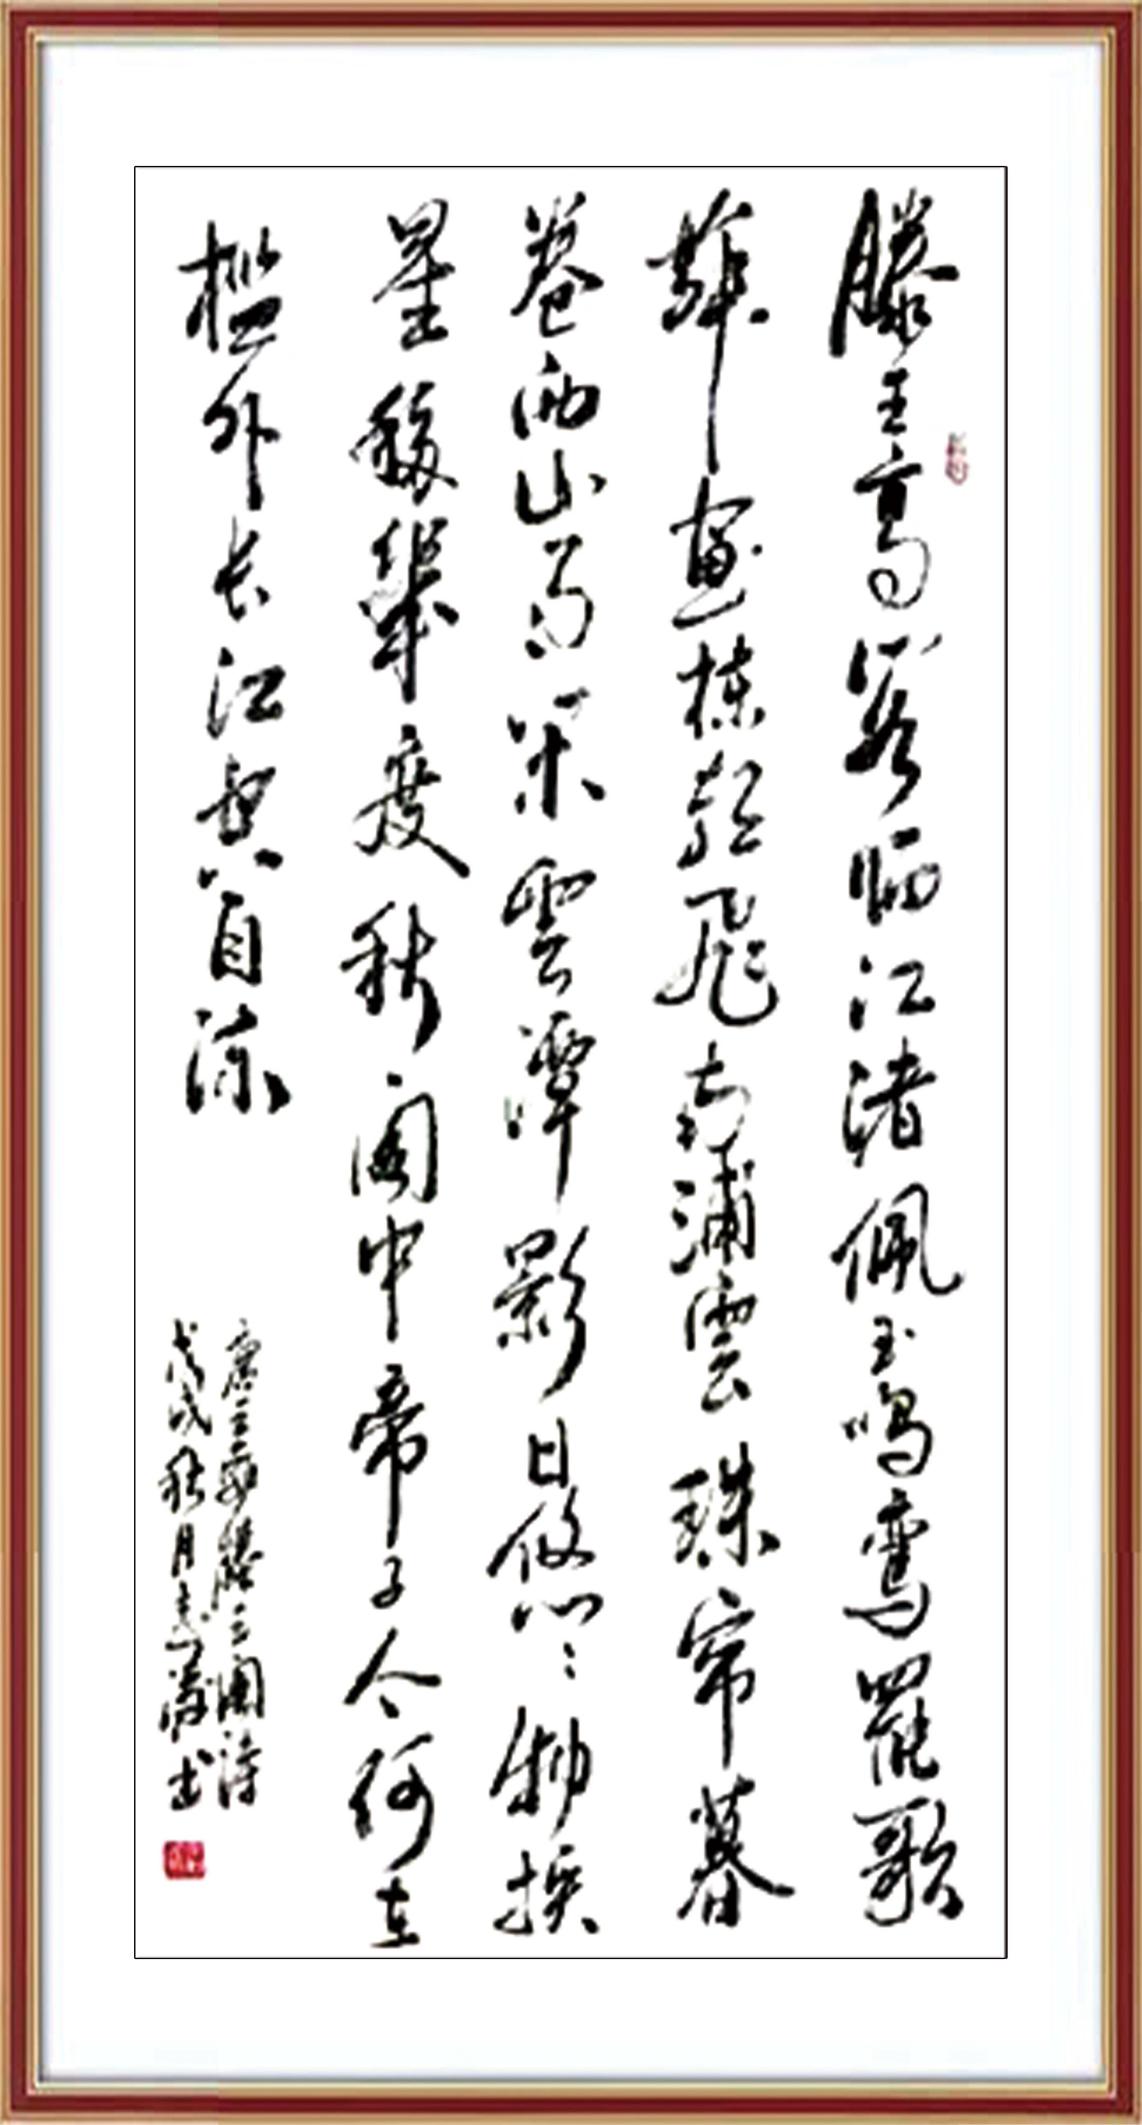 滕王高阁临江渚佩玉鸣鸾罢歌
舞画栋朝飞南浦雲珠帘暮
卷西山雨闲雲潭影日悠〻物换
星移幾度秋阁中帝子今何在
槛外长江空自流
唐王勃滕王阁诗
戊戌秋月志书